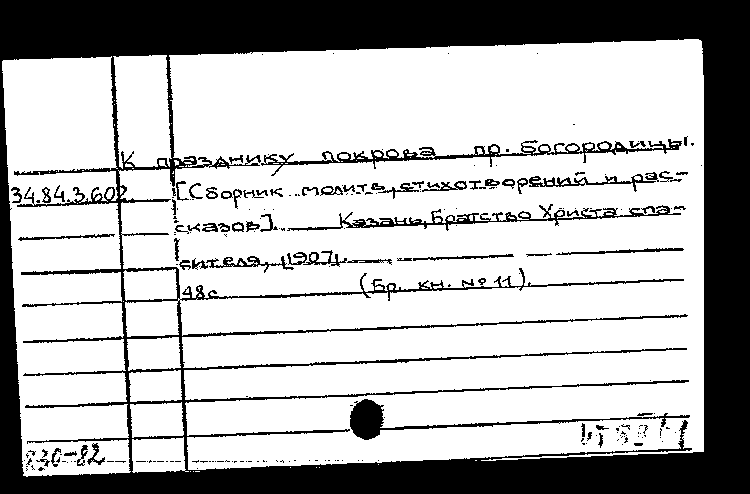 К празднику покрова пр. Богородицы.
34.84.3.602. [Сборник молитв, стихотворений и рас-
сказов]. Казань, Братство Христа спа-
сителя, [1907].
48с. (Бр. кн. № 11).
830-82